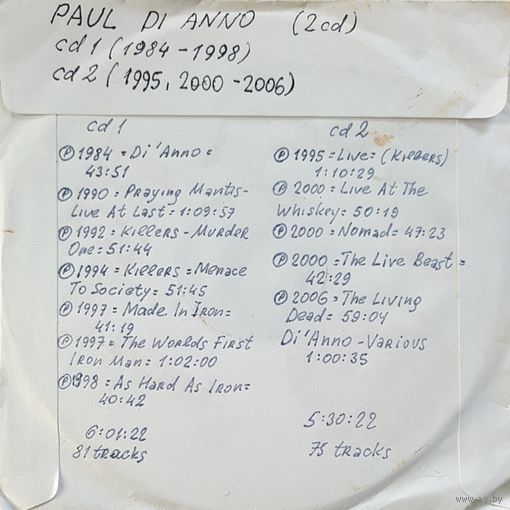 PAUL DI ANNO (2cd)
cd 1 (1984-1998)
cd 2 (1995, 2000-2006)
cd 1
Ⓟ 1984 = Di'Anno =
43:51
Ⓟ 1990 = Praying Mantis-
Live At Last = 1:09:57
Ⓟ 1992 = Killers - Murder
One = 51:44
Ⓟ 1994 = Killers = Menace
To Society = 51:45
Ⓟ 1997 = Made In Iron =
41:19
Ⓟ 1997 = The Worlds First
Iron Man = 1:02:00
Ⓟ 1998 = As Hard As Iron =
40:42
6:01:22
81 tracks
cd 2
Ⓟ 1995 = Live = (Killers)
1:10:29
Ⓟ 2000 = Live At The
Whiskey = 50:19
Ⓟ 2000 = Nomad = 47:23
Ⓟ 2000 = The Live Beast =
42:29
Ⓟ 2006 = The Living
Dead = 59:04
Di'Anno - Various
1:00:35
5:30:22
75 tracks
www.ay.by